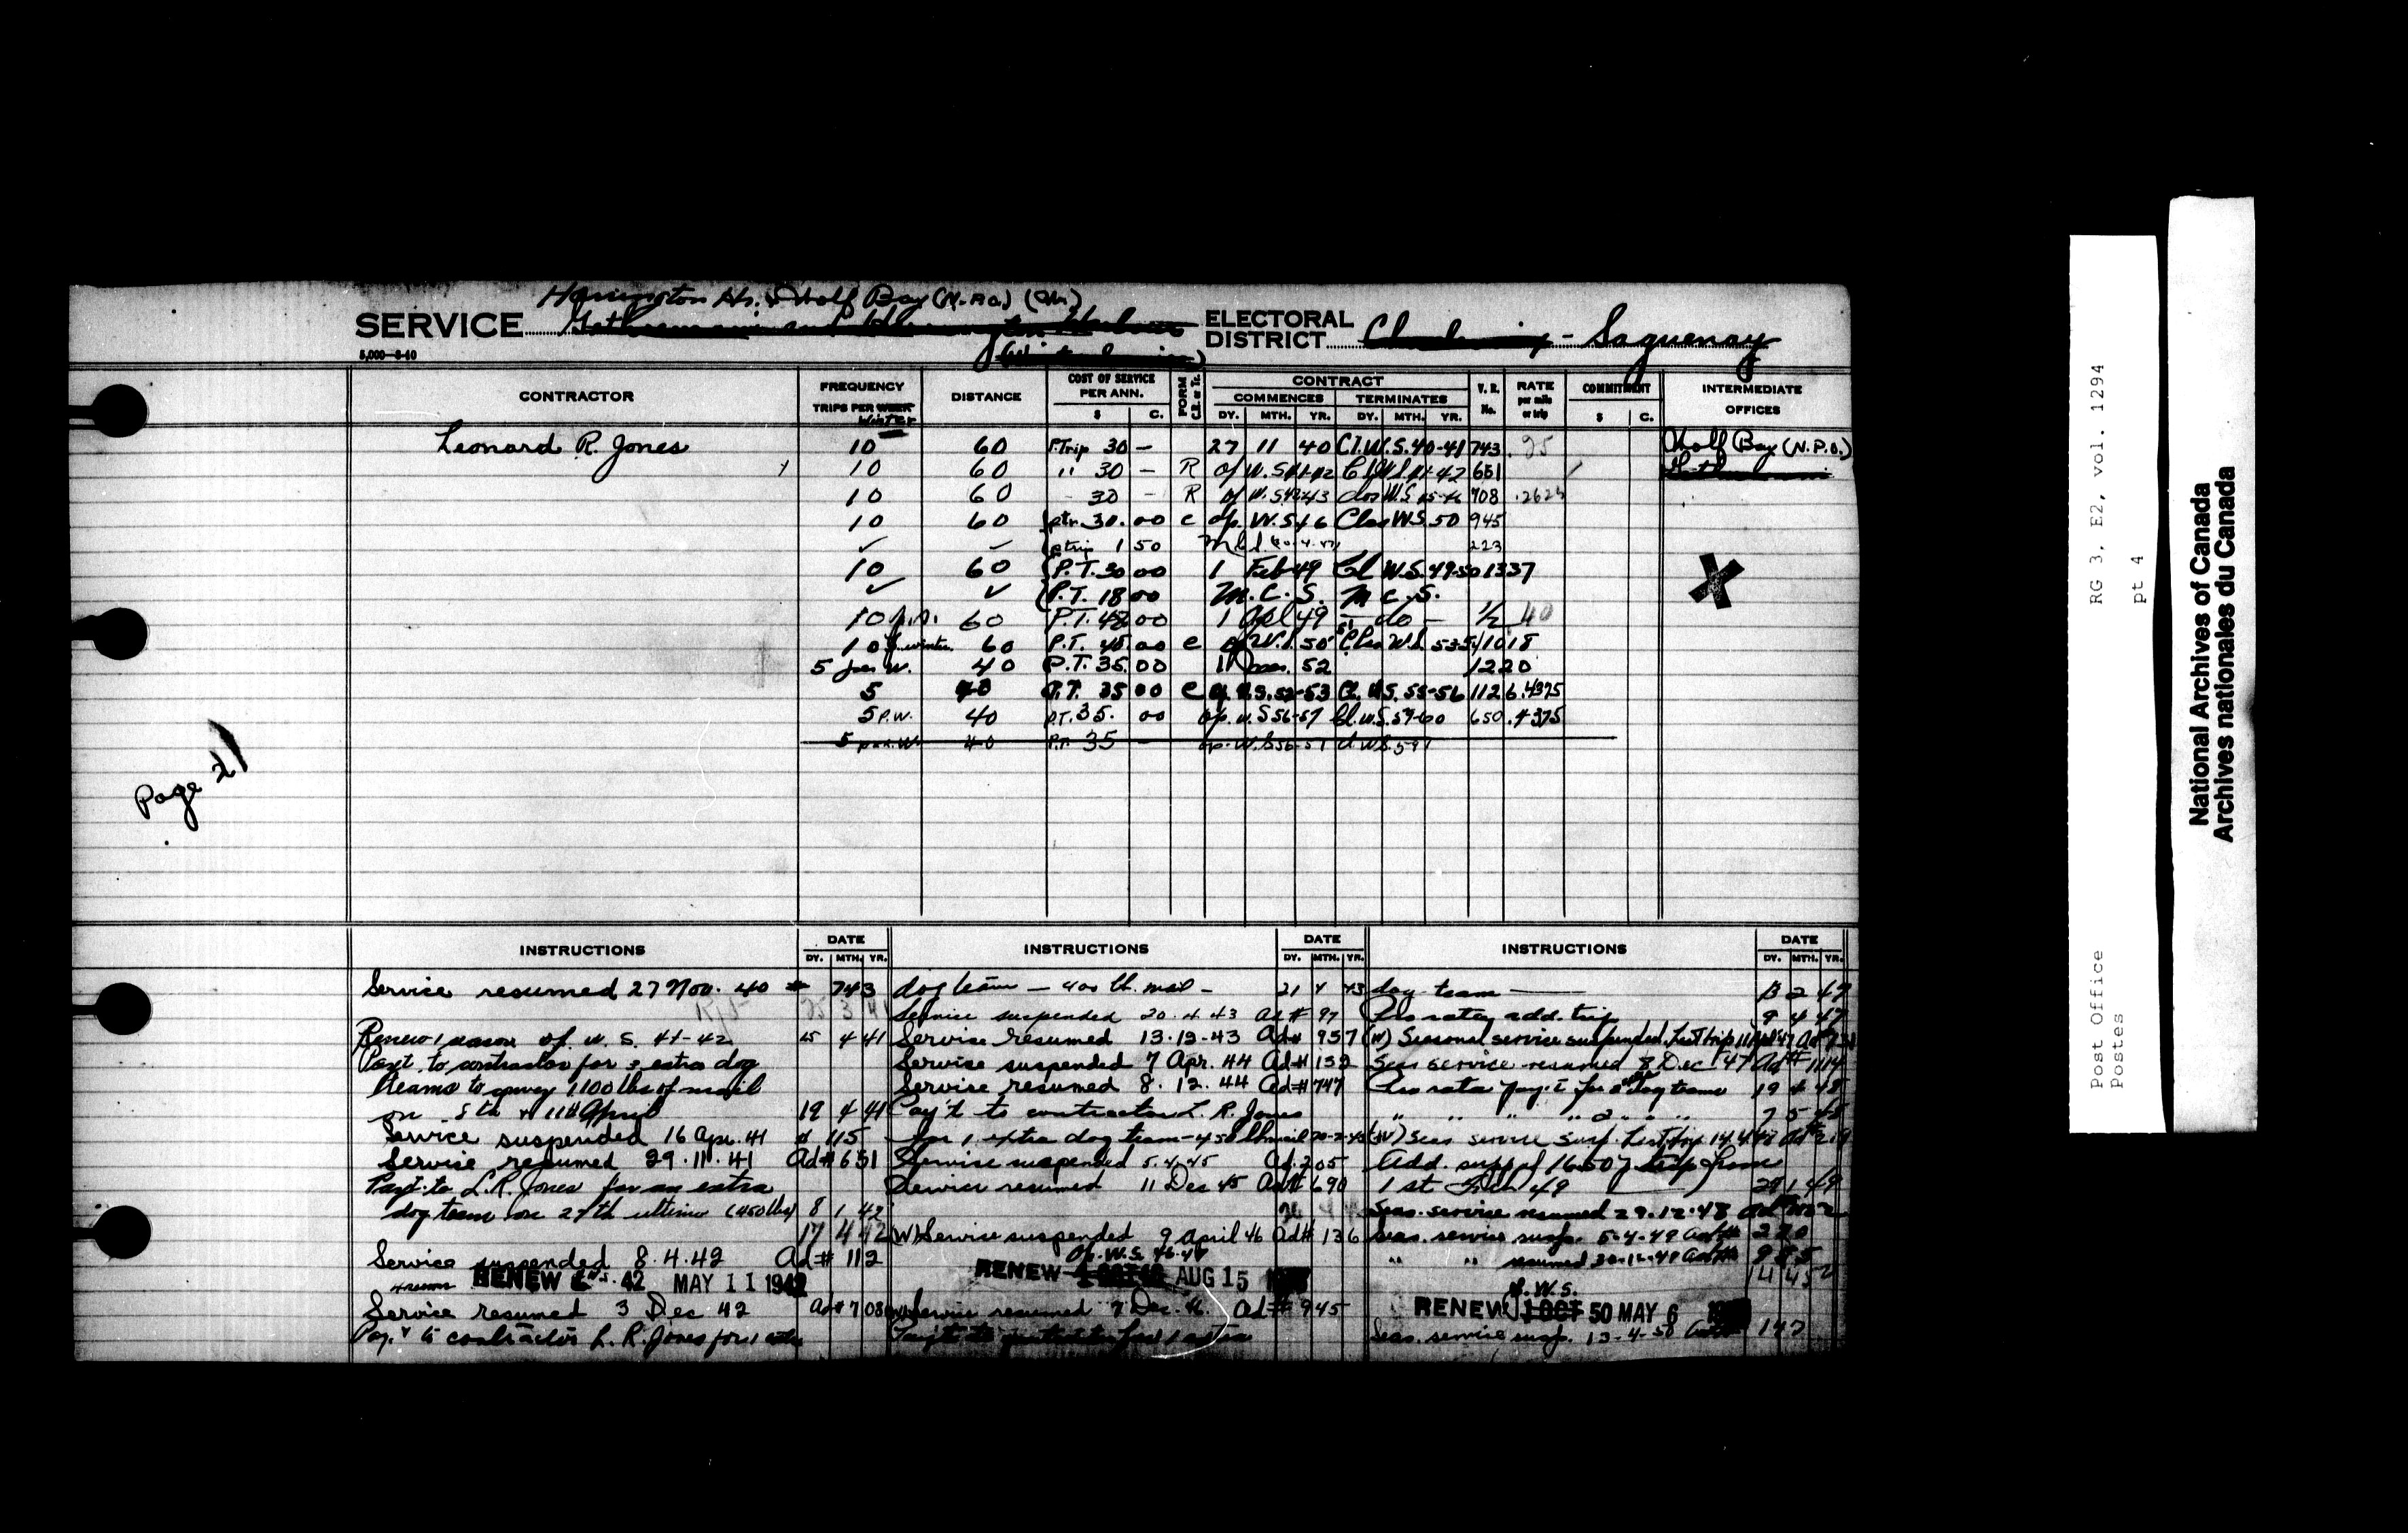 Harrington Hr. & Wolf Bay (N.P.O.) (Wr.)
SERVICE
ELECTORAL DISTRICT - Saguenay
5,000—8-40
CONTRACTOR FREQUENCY TRIPS PER WEEK Winter DISTANCE COST OF SERVICE PER ANN. $ C. FORM CONTRACT COMMENCES DY. MTH. YR. TERMINATES DY. MTH. YR. V. R. No. RATE per mile or trip COMMITMENT $ C. INTERMEDIATE OFFICES
Leonard R. Jones 10 60 P.Trip 30 — 27 11 40 Cl.W.S. 40-41 743 .25 Wolf Bay (N.P.O.)
10 60 " 30 — R op W.S. 41-42 Cl W.S. 41-42 651
10 60 - 30 - R op W.S. 42-43 clos W.S. 45-46 708 .2625
10 60 ptr. 30.00 c op. W.S. 46 Clos W.S. 50 945
✓ – ptrip 1 50 223
10 60 P.T. 30 00 1 Feb 49 Cl W.S. 49-50 1337
✓ ✓ P.T. 18 00 M.C.S. M.C.S.
10 60 P.T. 48 00 1 Apl 49 — do — 1/2 40
10 winter 60 P.T. 48.00 c op W.S. 50 Clos W.S. 1018
5 per W. 40 P.T. 35.00 1 52 1220
5 40 P.T. 35 00 c op. W.S. 52-53 Cl. W.S. 55-56 1126 .4375
5 P.W. 40 P.T. 35. 00 op. W.S 56-57 Cl. W.S. 59-60 650 .4375
5 per. W. 40 P.T. 35 — op. W.S 56-57 cl W.S. 59
Page 21
INSTRUCTIONS DATE DY. MTH. YR. INSTRUCTIONS DATE DY. MTH. YR. INSTRUCTIONS DATE DY. MTH. YR.
Service resumed 27 Nov. 40 # 743
Renew 1 season op. W. S. 41-42 4 41
Payt. to contractor for 3 extra dog
teams to convey 1100 lbs of mail
on 5th & 11th April 19 4 41
Service suspended 16 Apr. 41 # 115
Service resumed 29.11.41 Ad# 651
Payt. to L.R. Jones for an extra
dog team on 27th ultimo (450 lbs) 8 1 42
17 4 42
Service suspended 8.4.42 Ad# 112
RENEW 42 MAY 11 1942
Service resumed 3 Dec 42 Ad# 708
Pay't to contractor L. R. Jones for 1 extra
dog team — 400 lb. mail - 21 4 43
Service suspended 20.4.43 Ad# 97
Service resumed 13.12.43 Ad# 957
Service suspended 7 Apr. 44 Ad# 132
Service resumed 8.12.44 Ad# 747
Pay't to contractor L. R. Jones
for 1 extra dog team - 450 lb mail
Service suspended 5.4.45 Ad. 205
Service resumed 11 Dec 45 Ad# 690
(W) Service suspended 9 April 46 Ad# 136
Op. W.S. 46-47
RENEW AUG 15
(W) Service resumed 7 Dec. 46. Ad# 945
Pay't to contractor for 1 extra
dog team — 2 47
Pro rata, add. trip 9 4 47
(W) Seasonal service suspended. Last trip
Seas service resumed 8 Dec '47 Ad# 1114
Pro rata pay't for dog team 19 4 48
" " " " 2 " " 7 5 48
(W) Seas service susp. Last trip 14.4.48
Add. supp of 16.50 p trip from
1 st Feb 49 1 49
Seas. service resumed 29.12.48
Seas. service susp. 5-4-49 Ad# 220
" " resumed 20-12-49 Ad# 985
W.S.
RENEW 1 OCT 50 MAY 6
Seas. service susp. 13-4-50 Ad#
RG 3, E2, vol. 1294
pt 4
Post Office
Postes
National Archives of Canada
Archives nationales du Canada